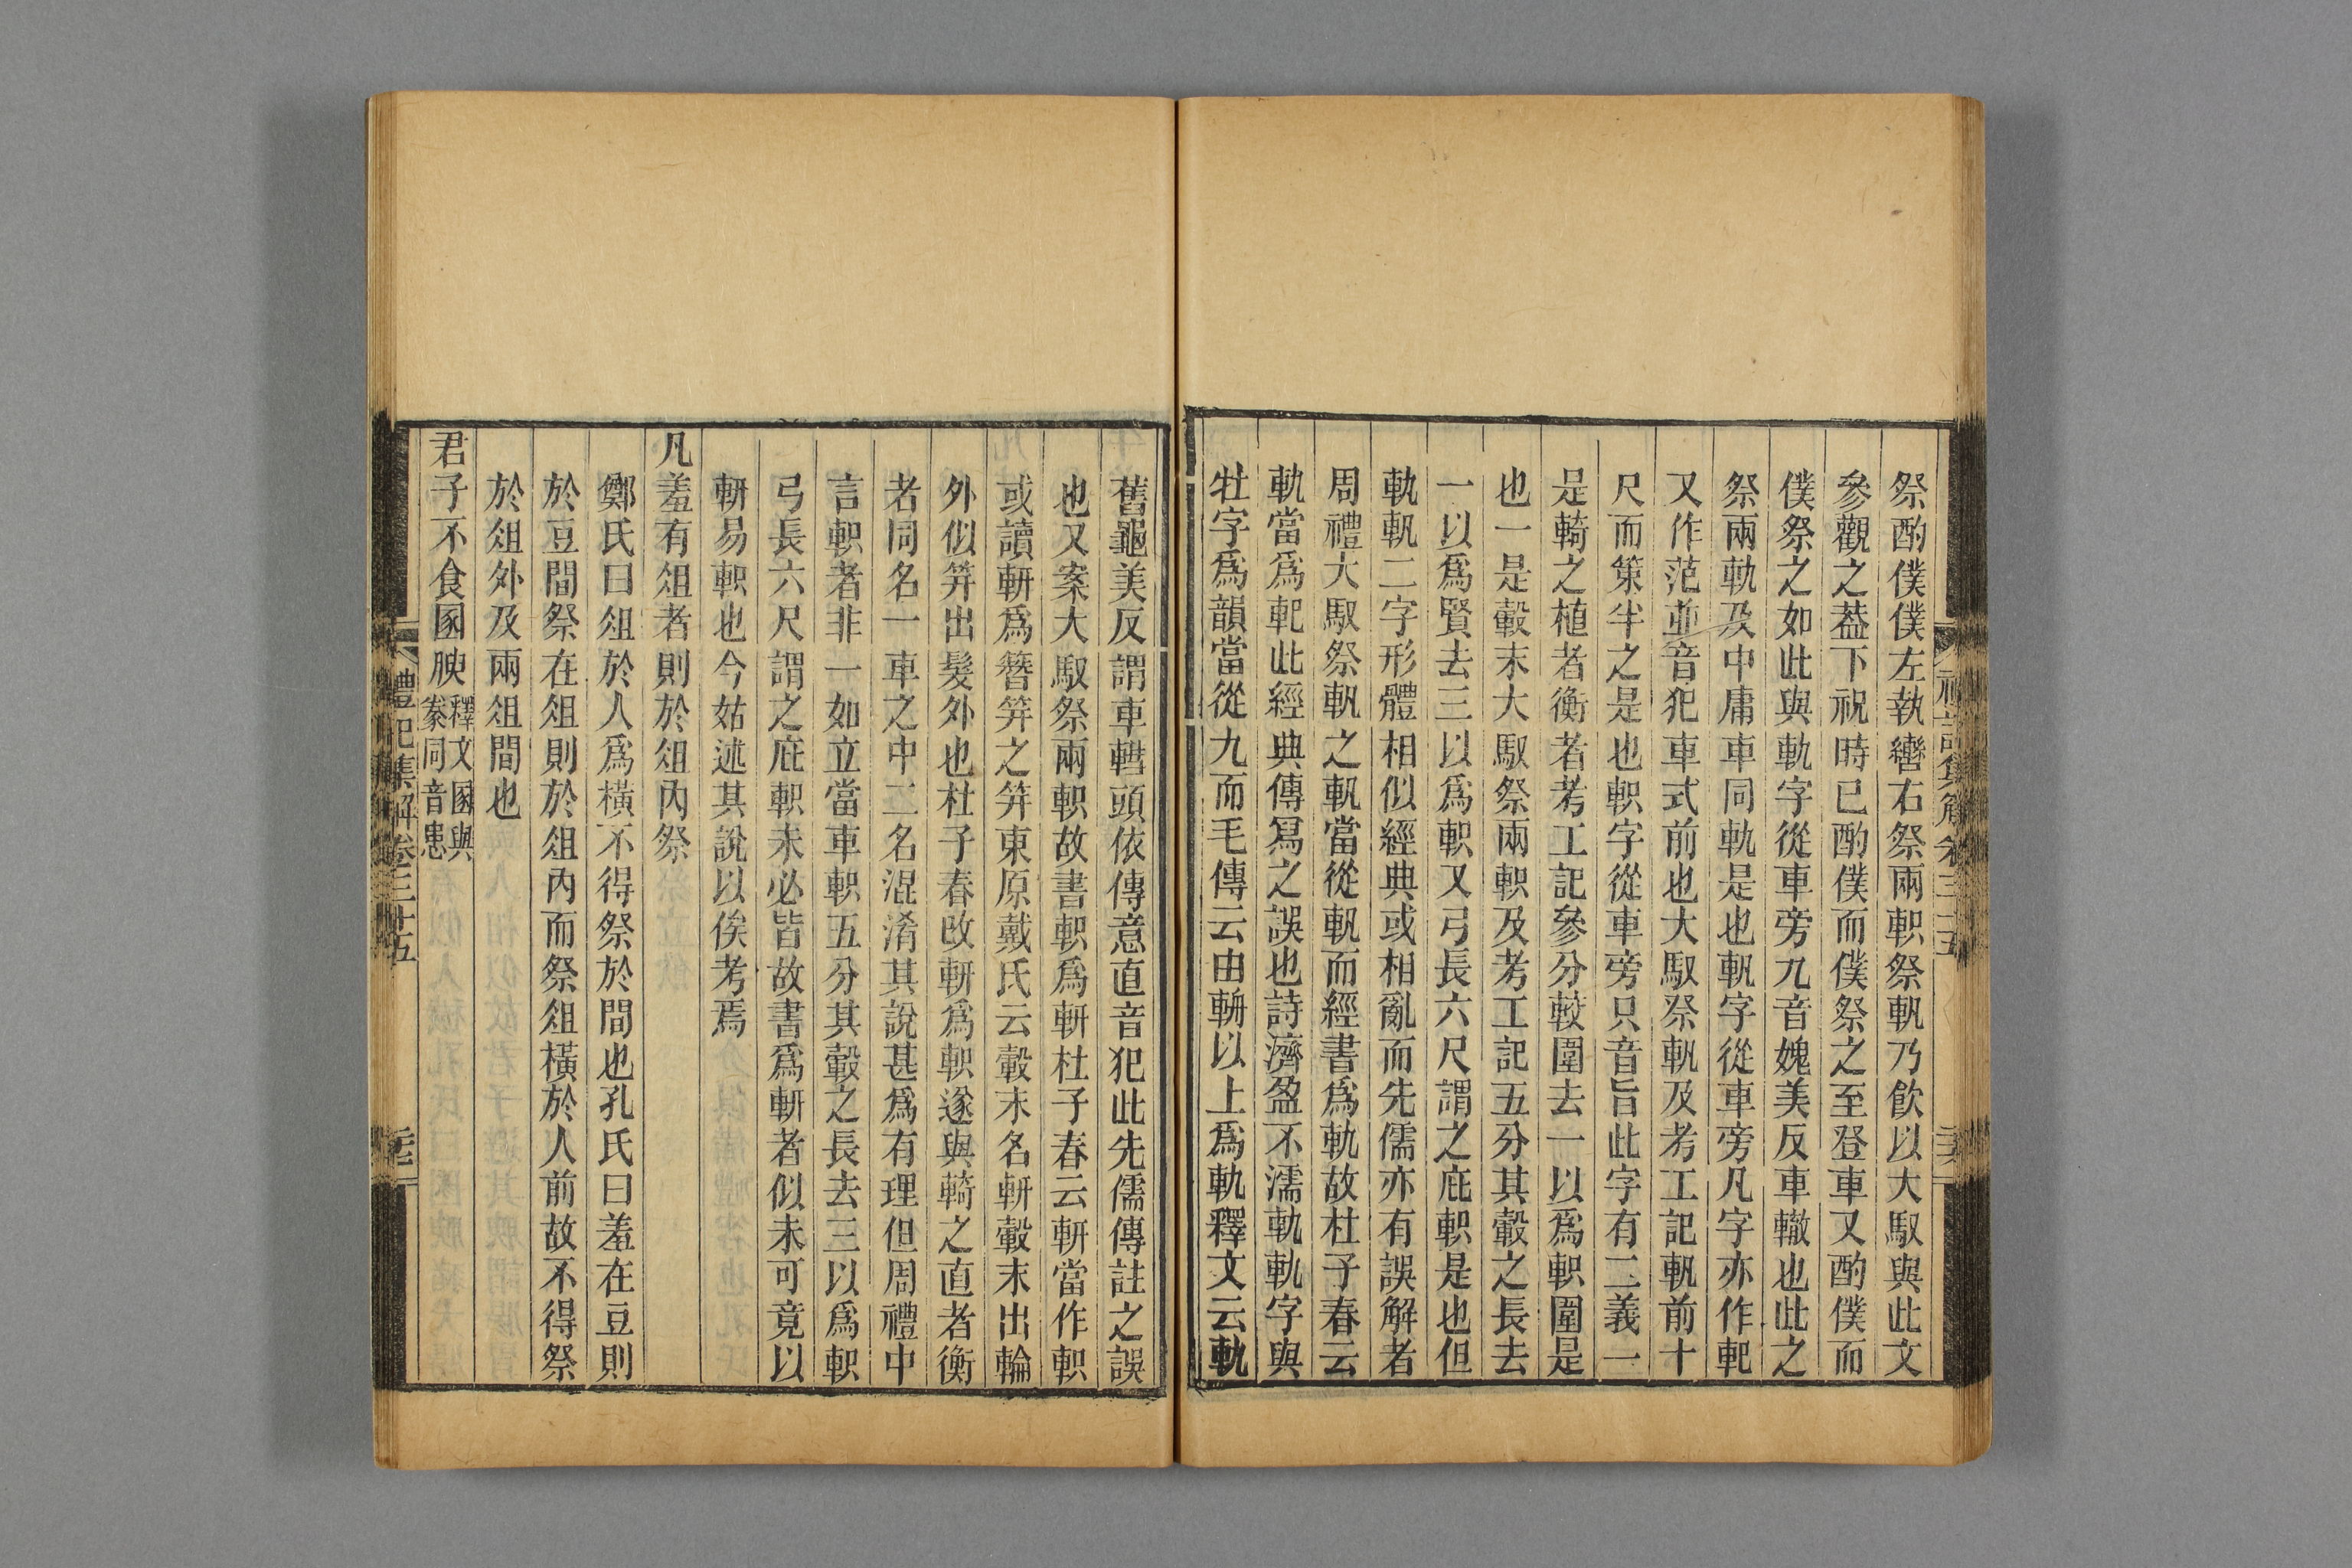 祭酌僕僕左執轡右祭兩軹祭軓乃飲以大馭與此文
參觀之葢下祝時已酌僕而僕祭之至登車又酌僕而
僕祭之如此與軌字從車旁九音媿美反車轍也此之
祭兩軌及中庸車同軌是也軓字從車旁凡字亦作軶
又作范並音犯車式前也大馭祭軓及考工記軓前十
尺而策半之是也軹字從車旁只音旨此字有二義一
是輢之植者衡者考工記參分較圍去一以爲軹圍是
也一是轂末大馭祭兩軹及考工記五分其轂之長去
一以爲賢去三以爲軹又弓長六尺謂之庇軹是也但
軌軓二字形體相似經典或相亂而先儒亦有誤解者
周禮大馭祭軓之軓當從軓而經書爲軌故杜子春云
軌當爲軶此經典傳冩之誤也詩濟盈不濡軌軌字與
牡字爲韻當從九而毛傳云由輈以上爲軌釋文云軌
舊龜美反謂車轊頭依傳意直音犯此先儒傳註之誤
也又案大馭祭兩軹故書軹爲軿杜子春云軿當作軹
或讀軿爲簪笄之笄東原戴氏云轂末名軿轂末出輪
外似笄出髮外也杜子春改軿爲軹遂與輢之直者衡
者同名一車之中二名混淆其說甚爲有理但周禮中
言軹者非一如立當車軹五分其轂之長去三以爲軹
弓長六尺謂之庇軹未必皆故書爲軿者似未可竟以
軿易軹也今姑述其說以俟考焉
凡羞有俎者則於俎內祭
鄭氏曰俎於人爲橫不得祭於間也孔氏曰羞在豆則
於豆間祭在俎則於俎內而祭俎橫於人前故不得祭
於俎外及兩俎間也
君子不食圂腴釋文圂與豢同音患
禮記集解卷三十五